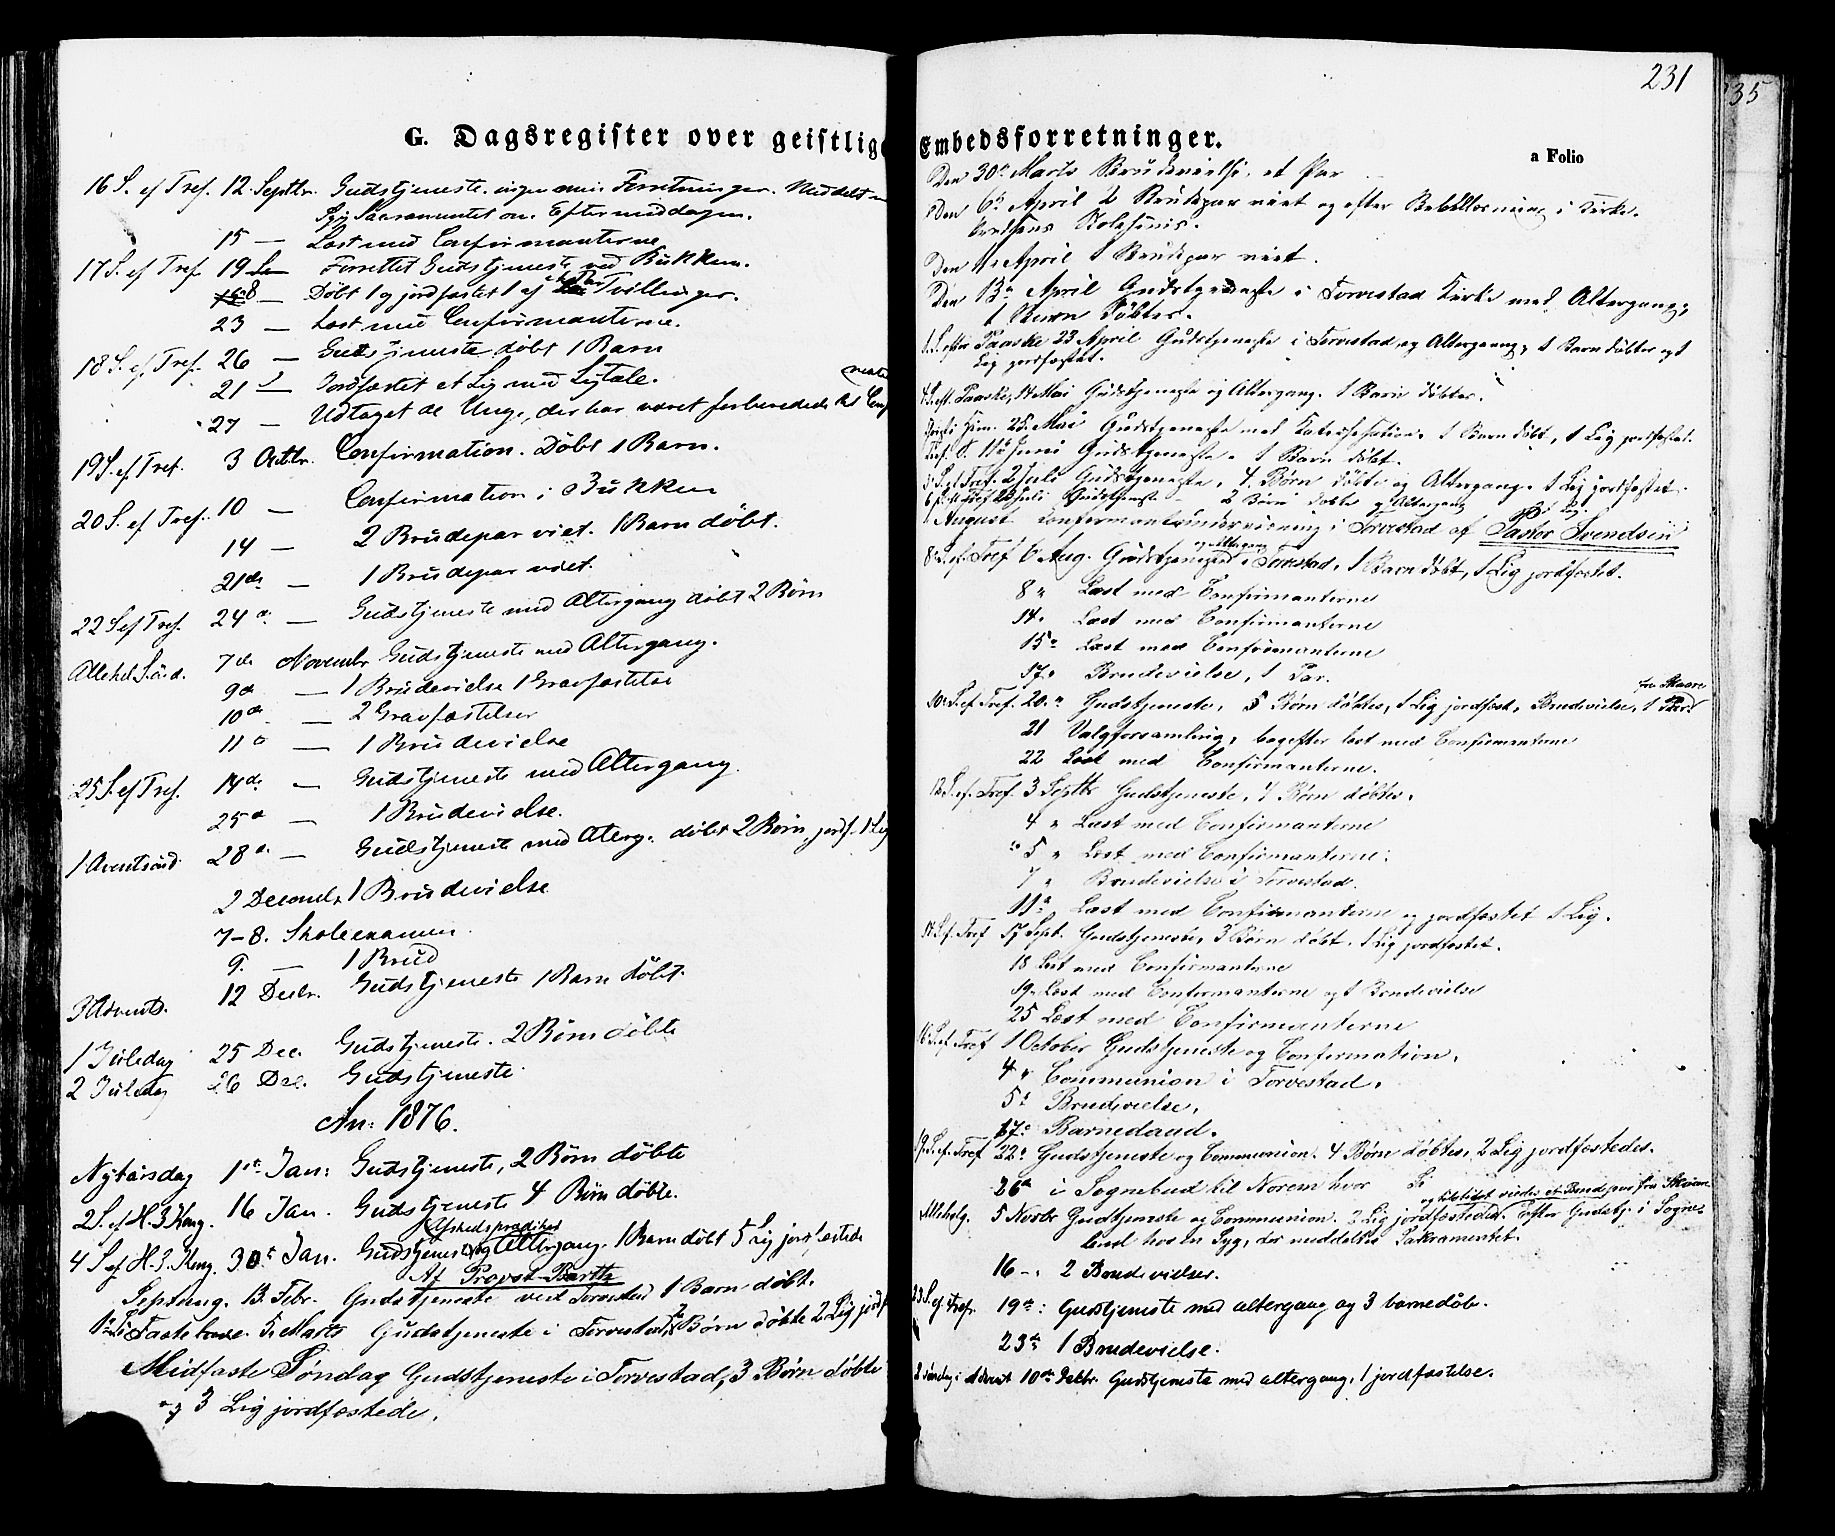 G. Dagsregister over geistlig
16 S. ef Tref. 12. Septbr. Gudstjeneste. ingen min. Forretninger. Meddelt
Syg Sacramentet om Eftermiddagen.
15 — Læst med Confirmanterne
17 S. ef Tref. 19 — Forrettet Gudstjeneste ved Bukken.
8 — Døbt 1 og jordfæstet 1 af Tvillinger.
23 — Læst med Confirmanterne.
18 S. ef Tref. 26 — Gudstjeneste døbt 1 Barn
21 — Jordfæstet et Lig med Ligtale.
27 — Udtaget de Unge, der har været forberedede til Conf
19 S. ef Tref. 3 Octbr. Confirmation. Døbt 1 Barn.
20 S. ef Tref. 10 — Confirmation i Bukken
14 — 2 Brudepar viet. 1 Barn døbt.
21de — 1 Brudepar viet.
22 S ef Tref. 24de — Gudstjeneste med Altergang døbt 2 Børn
Allehel. Sønd. 7de Novembr Gudstjeneste med Altergang.
9de — 1 Brudevielse 1 Gravfæstelse
10de — 2 Gravfæstelser
11te — 1 Brudevielse
25 S. ef Tref. 14de — Gudstjeneste med Altergang.
25de — 1 Brudevielse.
1 Aventsønd 28de — Gudstjeneste med Alterg. døbt 2 Børn, jordf. 1 Lig
2 Decemb. 1 Brudevielse
7-8. Skoleexamen
9. — 1 Brud
3 Advents. 12 Decbr. Gudstjeneste 1 Barn døbt.
1 Juledag 25 Dec. Gudstjeneste. 2 Børn døbte
2 Juledag 26 Dec. Gudstjeneste
An: 1876.
Nytarsdag 1st Jan: Gudstjeneste, 2 Børn døbte
2 S. ef H. 3 Kong. 16 Jan. Gudstjeneste 4 Børn døbte.
Afskedsprædiken
4 S ef H. 3. Kong. 30t Jan. Gudstjeneste og Altergang. 1 Barn døbt 5 Lig jordfæstede
Af Provst
Septuag. 13. Febr. Gudstjeneste ved Torvestad 1 Barn døbt.
1 S. i Faste 5. Marts Gudstjeneste i Torvestad, 2 Børn døbte 2 Lig jordf
Midfaste Søndag Gudstjeneste i Torvestad, 3 Børn døbte
og 3 Lig jordfæstede.
231
35
Embedsforretninger.
a Folio
Den 30te Marts Brudevielse, et Par
Den 6te April 2 Brudepar viet og efter i Kirke.
Den April 1 Brudepar viet.
Den 13de April Gudstjeneste i Torvestad Kirke med Altergang,
1 Barn døbtes.
1. S. efter Paaske 23 April Gudstjeneste i Torvestad og Altergang, 1 Barn døbtes og 1
Lig jordfæstet.
4 S. eft. Paaske, 14 Mai Gudstjeneste og Altergang. 1 Barn døbtes.
Christi Him. 25. Mai Gudstjeneste med Katechisation, 1 Barn døbt, 1 Lig jordfæstet.
Tref. S. 11te Juni Gudstjeneste. 1 Barn døbt.
3 S. ef Tref. 2 Juli Gudstjeneste, 4. Børn døbte og Altergang. 1 Lig jordfæstet.
6 S. ef Tref 23 Juli Gudstjeneste — 2 Børn døbte og Altergang
1 August Confirmantundervisning i Torvestad af Pastor Svendsen
8de S. ef. Tref 6te Aug. Gudstjeneste og Altergang i Torvestad, 1 Barn døbt, 1 Lig jordfæstet.
8 " Læst med Confirmanterne
14. Læst med Confirmanterne
15de Læst med Confirmanterne
17. Brudevielse, 1 Par.
fra Skaare
10de S. ef Tref. 20. " Gudstjeneste, 5 Børn døbtes, 1 Lig jordfæst, Brudevielse, 1 Par
21 Valgforsamling, bagefter læst med Confirmanterne
22 Læst med Confirmanterne.
12 S. ef. Tref. 3 Septbr Gudstjeneste, 7 Børn døbtes.
4 " Læst med Confirmanterne
5 " Læst med Confirmanterne.
7 " Brudevielse i Torvestad.
11te Læst med Confirmanterne og jordfæstet 1 Lig.
14 S. ef. Tref 17 Sept. Gudstjeneste, 3 Børn døbt. 1 Lig jordfæstet.
18 Læst med Confirmanterne
19. Læst med Confirmanterne og 1 Brudevielse
25 Læst med Confirmanterne
16 S. ef Tref 1 October Gudstjeneste og Confirmation.
4 " Communion i Torvestad.
5te Brudevielse.
17de Barnedaad.
19. S. ef. Tref 22de Gudstjeneste og Communion. 4 Børn døbtes, 2 Lig jordfæstedes.
26de i Sognebud til Norem hvor
og tilsidst viedes et Brudepar fra Skaare
Allehelg. 5 Novbr Gudstjeneste og Communion. 2 Lig jordfæstedes. Efter Gudstj. i Sogne-
bud hos en Syg, der meddeltes Sakramentet.
16 —. 2 Brudevielser.
23 S. ef. Tref. 19de: Gudstjeneste med altergang og 3 barnedåb.
23de 1 Brudevielse.
2 søndag i Advent 10de Decbr. Gudstjeneste med altergang, 1 jordfæstelse.